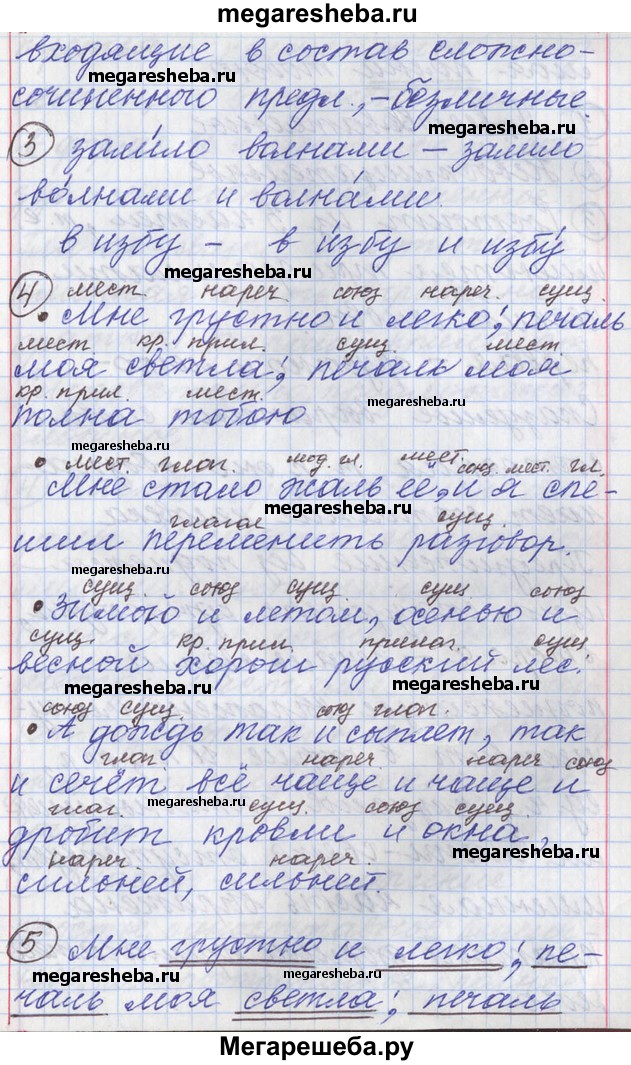 megaresheba.ru
входящие в состав сложно-
megaresheba.ru
сочиненного предл., - безличные.
megaresheba.ru
3 залило волнами - залило
во́лнами и волна́ми
в избу - в и́збу и избу́
megaresheba.ru
4 мест. нареч. союз нареч. сущ.
• Мне грустно и легко; печаль
мест кр. прил. сущ. мест.
моя светла; печаль моя
кр. прил. мест.
полна тобою
megaresheba.ru
megaresheba.ru
• мест. глаг. мод. гл. мест. союз мест. гл.
Мне стало жаль её, и я спе-
megaresheba.ru
глагол сущ.
шил переменить разговор.
megaresheba.ru
сущ. союз сущ. сущ союз
• Зимой и летом, осенью и
сущ. кр. прил. прилаг. сущ
весной хорош русский лес.
megaresheba.ru megaresheba.ru
союз сущ. союз глаг.
• А дождь так и сыплет, так
глаг нареч. нареч союз
и сечёт всё чаще и чаще и
megaresheba.ru
глаг. сущ. союз сущ.
дробит кровли и окна,
megaresheba.ru
нареч нареч.
сильней, сильней.
5 Мне грустно и легко; пе-
megaresheba.ru megaresheba.ru
чаль моя светла; печаль
megaresheba.ru
Мегарешеба.ру